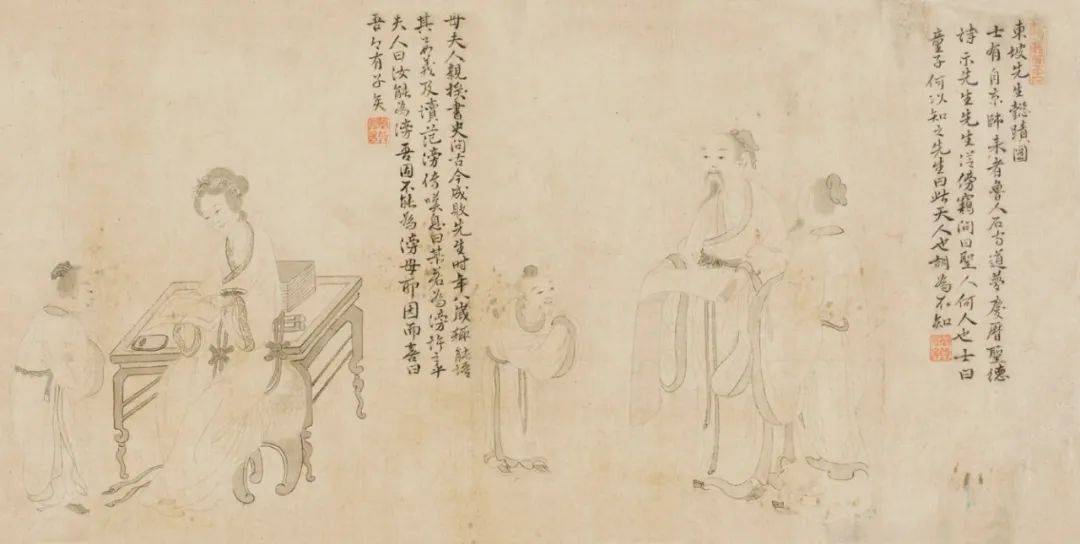 東坡先生懿蹟圖
士有自京師来者魯人石守道慶曆聖德
詩示先生先生從傍竊問曰聖人何人也士曰
童子何以知之先生曰此天人也胡為不知
母夫人親授書史問古今成敗先生時年八歲輒能語
其義及讀范滂傳嘆息曰某若為滂許之乎
夫人曰汝能為滂吾固不能為滂母耶因而喜曰
吾有子矣